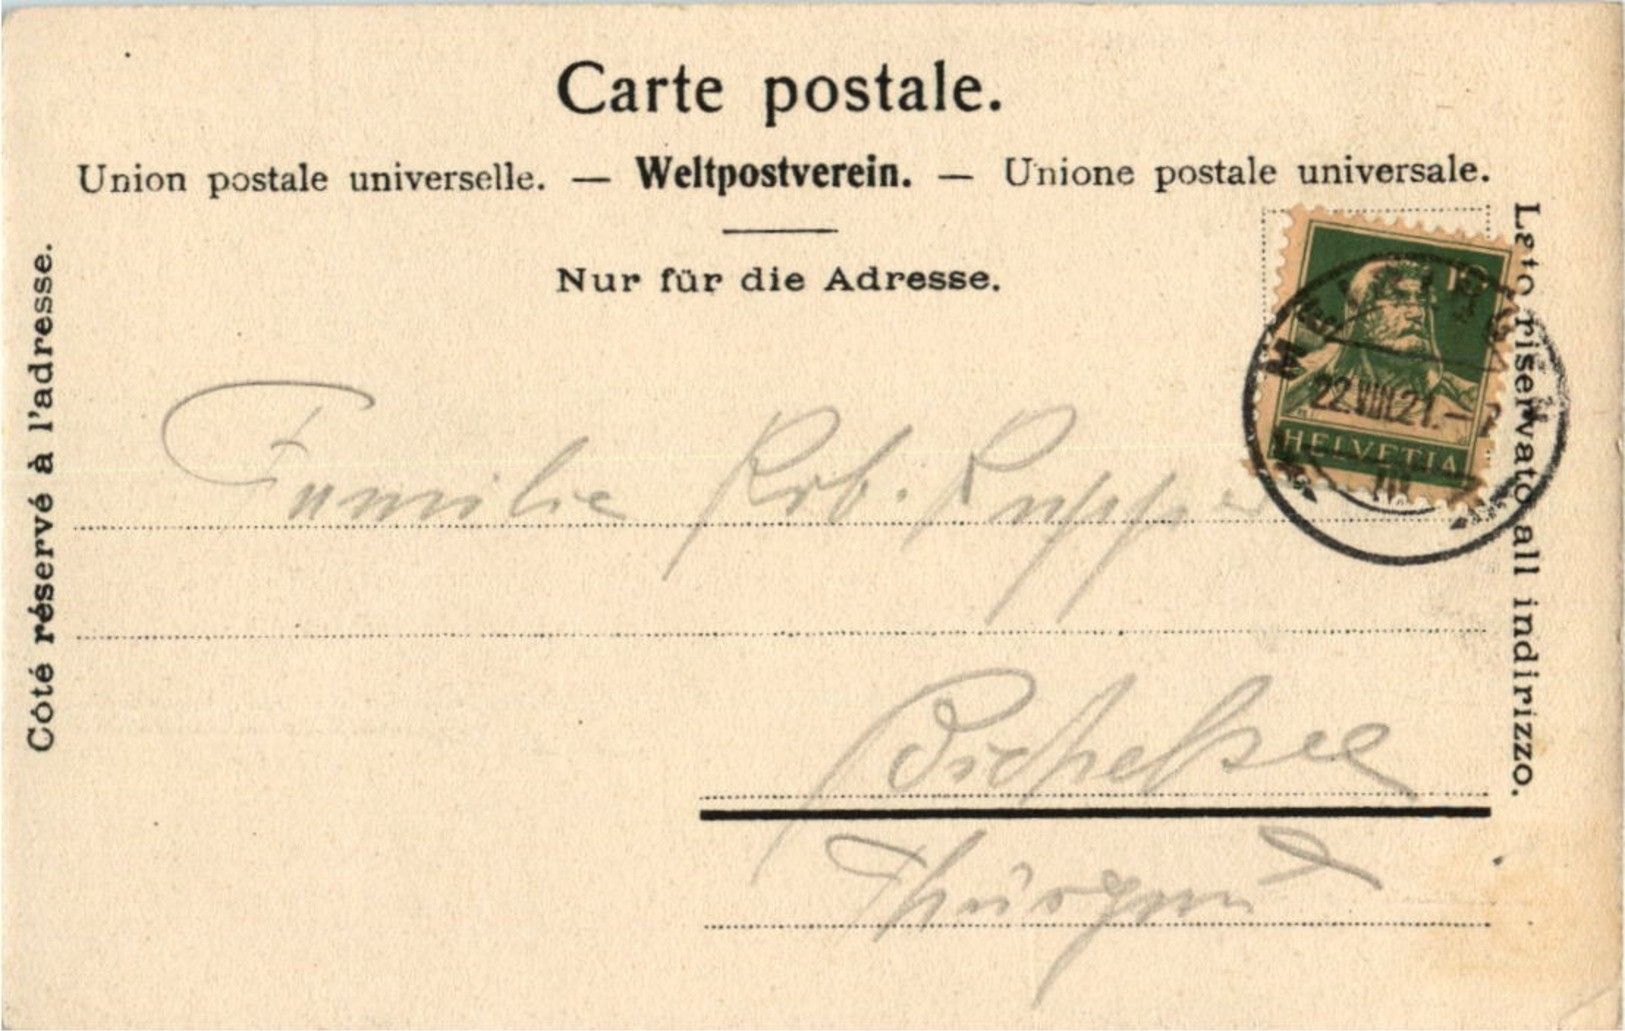 Carte postale.
Union postale universelle. — Weltpostverein. — Unione postale universale.
Nur für die Adresse.
Côté réservé à l'adresse.
Lato riservato all indirizzo.
HELVETIA
22.VIII.21.-
Familie Rob.
Bichelsee
Thurgau